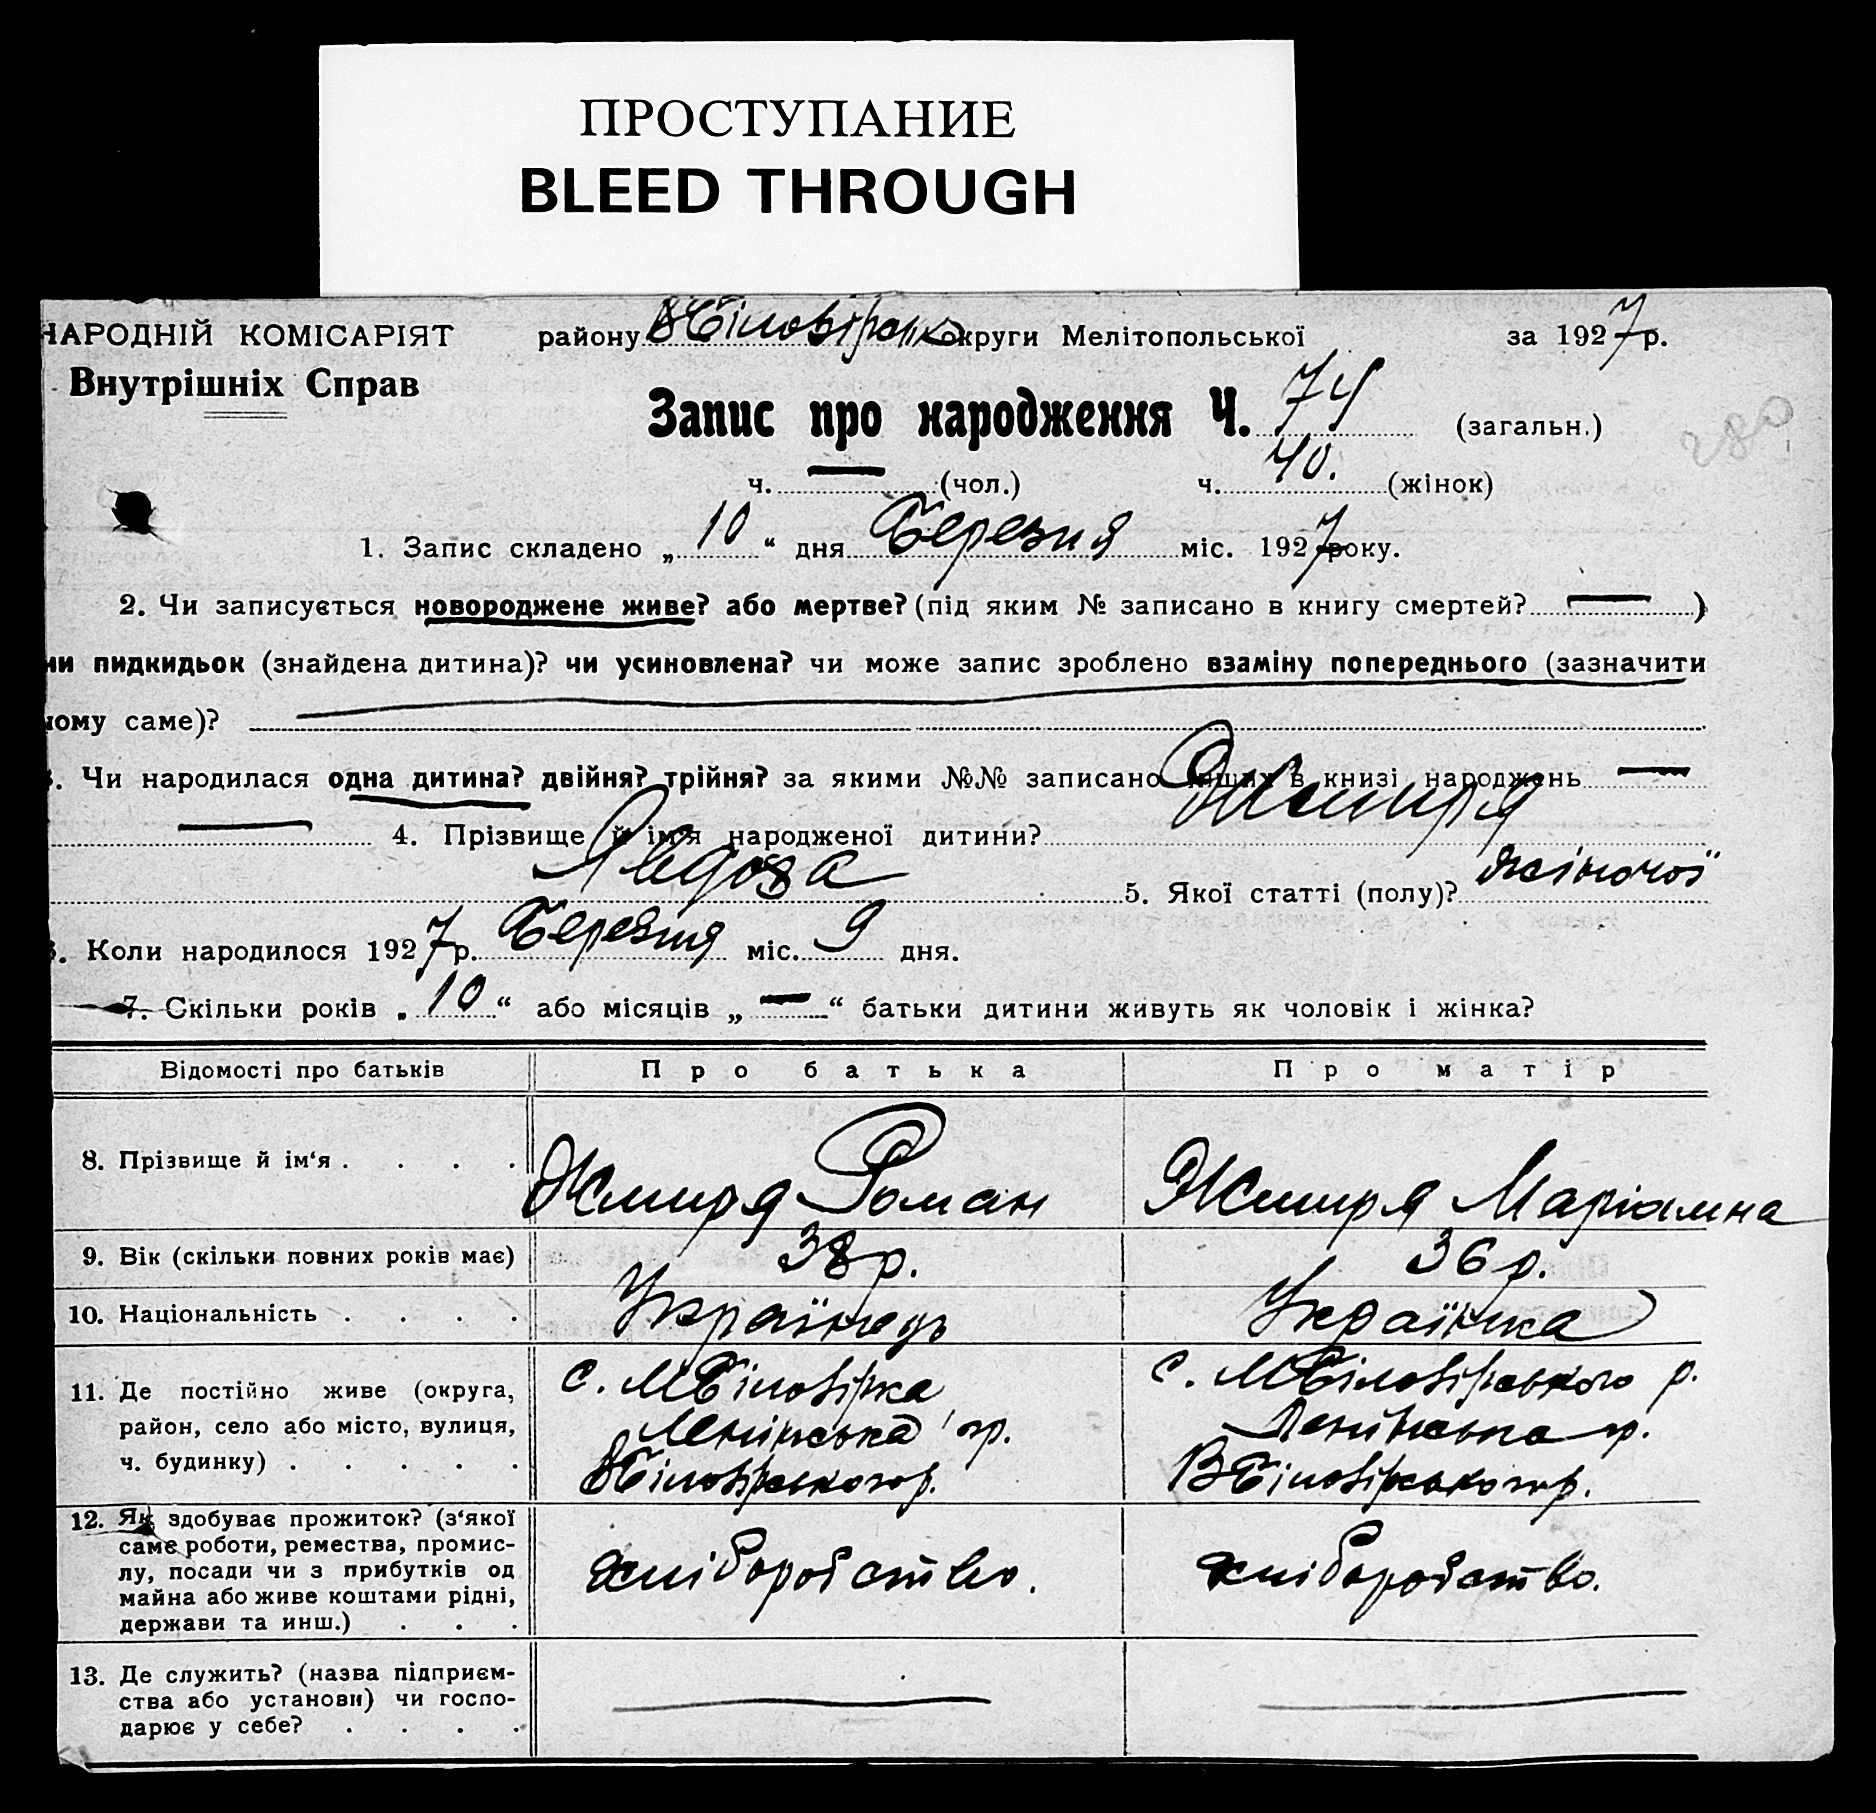 ПРОСТУПАНИЕ
BLEED THROUGH
НАРОДНІЙ КОМІСАРІЯТ району ВБіловірськ округи Мелітопольської за 1927 р.
Внутрішніх Справ
Запис про народження Ч. 74 (загальн.)
280
ч. — (чол.) ч. 40. (жінок)
1. Запис складено „10“ дня Березня міс. 1927 року.
2. Чи записується новороджене живе? або мертве? (під яким № записано в книгу смертей? — )
чи пидкидьок (знайдена дитина)? чи усиновлена? чи може запис зроблено взаміну попереднього (зазначити
чому саме)?
3. Чи народилася одна дитина? двійня? трійня? за якими №№ записано инших в книзі народжень —
— 4. Прізвище й ім'я народженої дитини? Жмиря
Явдоха 5. Якої статті (полу)? жіночої
6. Коли народилося 1927 р. Березня міс. 9 дня.
7. Скільки років „10“ або місяців „—“ батьки дитини живуть як чоловік і жінка?
Відомості про батьків Про батька Про матір
8. Прізвище й ім'я . . . . Жмиря Роман Жмиря Маріамна
9. Вік (скільки повних років має) 38 р. 36 р.
10. Національність . . . . Українець Українка
11. Де постійно живе (округа, с. МБіловірка с. МБіловірського р.
район, село або місто, вулиця, Ленінська гр. Ленінська гр.
ч. будинку) . . . . . ВБіловірського р. ВБіловірського р.
12. Як здобуває прожиток? (з'якої
саме роботи, ремества, промис-
лу, посади чи з прибутків од хліборобство. хліборобство.
майна або живе коштами рідні,
держави та инш.) . . .
13. Де служить? (назва підприєм-
ства або установи) чи госпо- — —
дарює у себе? . . . .